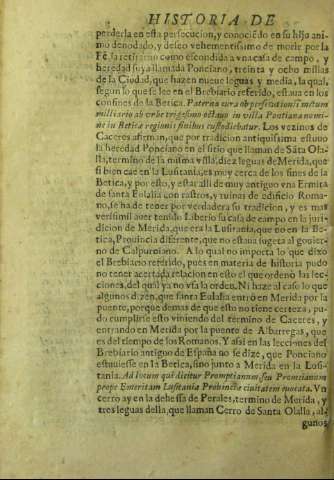 HISTORIA DE
perderla en esta persecucion, y conociēdo en su hijo ani-
mo denodado, y deseo vehementissimo de morir por la
Fè, la retiraron como escondida a vna casa de campo, y
heredad suya llamada Ponciano, treinta y ocho millas
de la Ciudad, que hazen nueue leguas y media, la qual,
segun lo que se lee en el Brebiario referido, estaua en los
confines de la Betica. Paterna cura ob persecutionis metum
milliario ab vrbe trigesimo octauo in villa Pontiana nomi-
ne in Betica regionis finibus custodiebatur. Los vezinos de
Caceres afirman, que por tradicion antiquissima estuuo
la heredad Ponciano en el sitio que llaman de Sāta Ola-
lla, termino de la misma villa, diez leguas de Merida, que
si bien cae en la Lusitania, es muy cerca de los fines de la
Betica, y por esto, y estar alli de muy antiguo vna Ermita
de santa Eulalia, con rastros, y ruinas de edificio Roma-
no, se ha de tener por verdadera su tradicion, y es mas
verisimil auer tenido Liberio su casa de campo en la juri-
dicion de Merida, que era la Lusitania, que no en la Be-
tica, Prouincia diferente, que no estaua sugeta al gouier-
no de Calpurniano. A lo qual no importa lo que dixo
el Brebiario referido, pues en materia de historia pudo
no tener acertada relacion en esto el que ordenò las lec-
ciones, del qual ya no vsa la orden. Ni haze al caso lo que
algunos dizen, que santa Eulalia entrò en Merida por la
puente, porque demas de que esto no tiene certeza, pu-
do cumplirse esto viniendo del termino de Caceres, y
entrando en Merida por la puente de Albarregas, que
es del tiempo de los Romanos. Y assi en las lecciones del
Brebiario antiguo de España no se dize, que Ponciano
estuuiesse en la Betica, sino junto a Merida en la Lusi-
tania. Ad locum qui dicitur Promptianum, seu Promtianum
prope Emeritam Lusitaniæ Probinciæ ciuitatem vocata. Vn
cerro ay en la dehessa de Perales, termino de Merida, y
tres leguas della, que llaman Cerro de Santa Olalla, al-
gunos